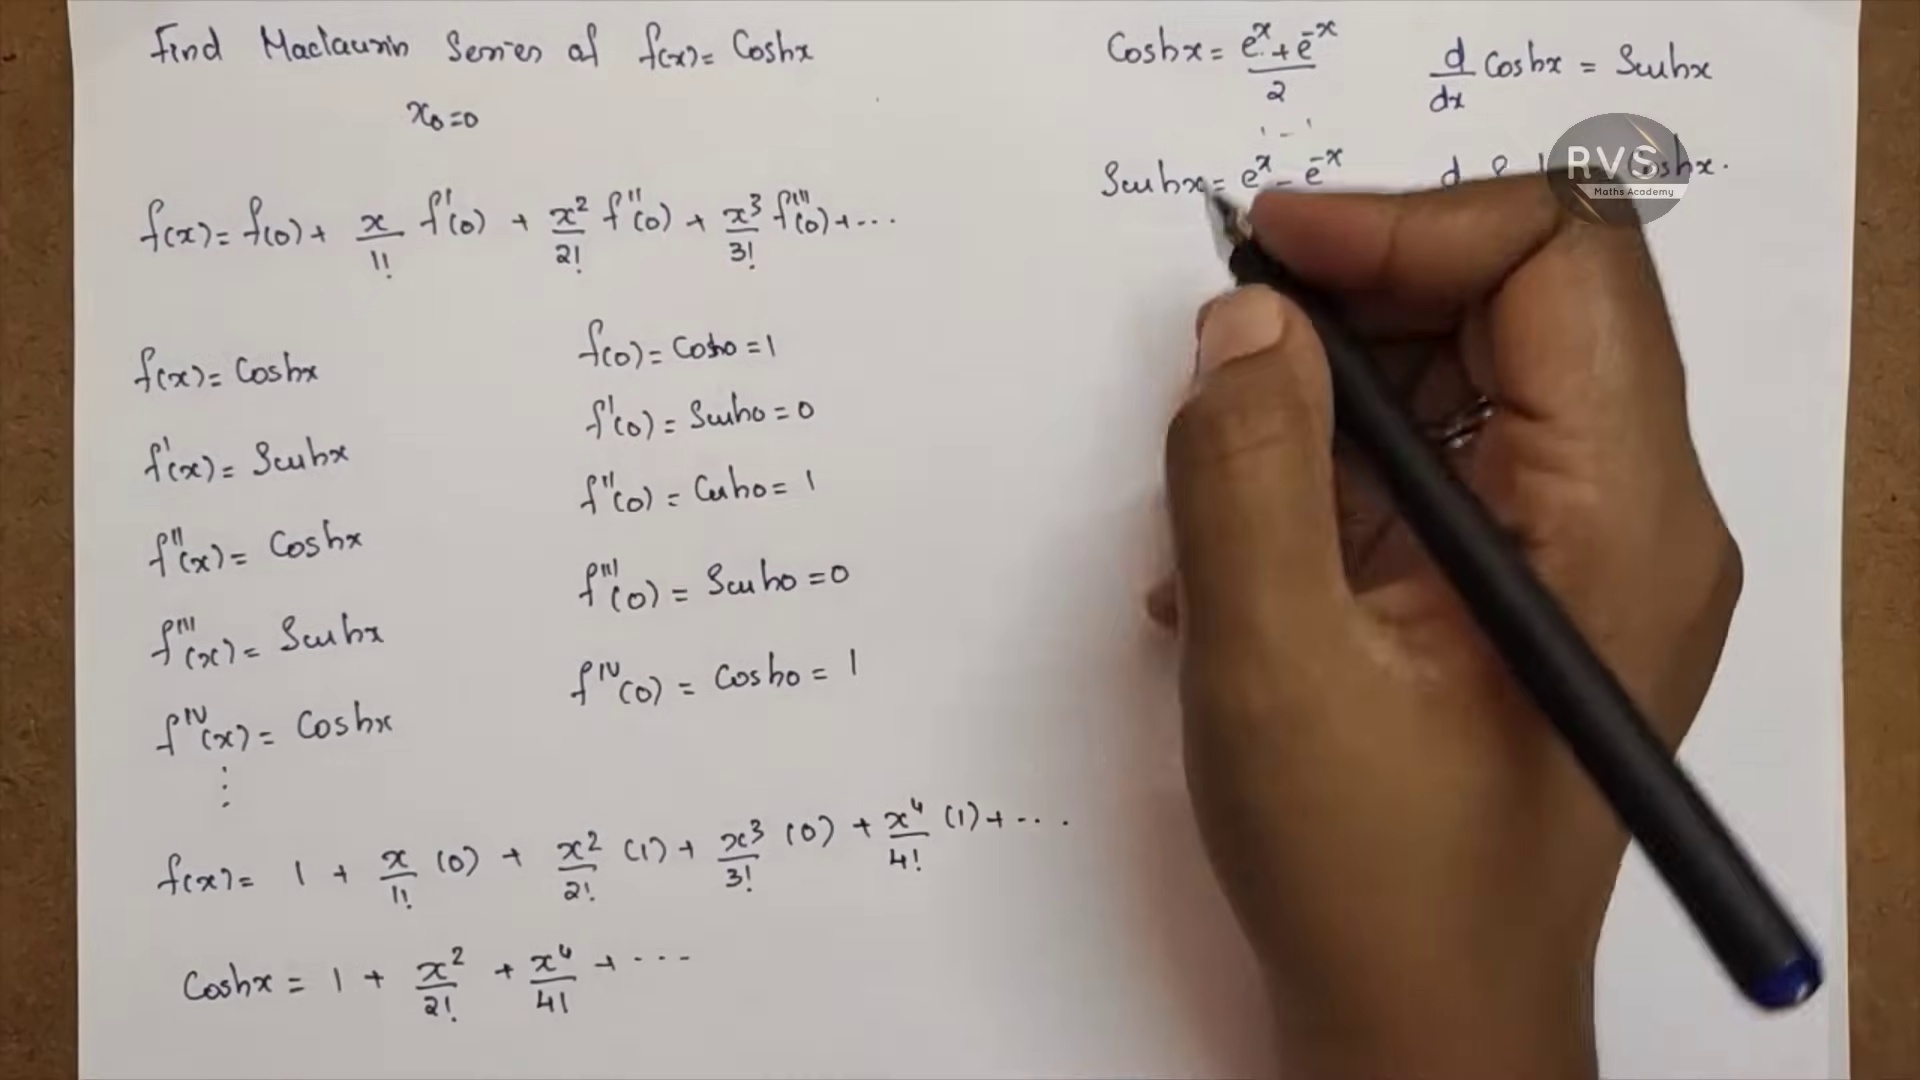 Find Maclaurin Series of f(x) = Coshx
x₀=0
f(x) = f(0) + x/1! f'(0) + x²/2! f''(0) + x³/3! f'''(0) + ...
f(x) = Coshx
f'(x) = Sinhx
f''(x) = Coshx
f'''(x) = Sinhx
f^IV(x) = Coshx
⋮
f(0) = Cosh0 = 1
f'(0) = Sinh0 = 0
f''(0) = Cosh0 = 1
f'''(0) = Sinh0 = 0
f^IV(0) = Cosh0 = 1
f(x) = 1 + x/1! (0) + x²/2! (1) + x³/3! (0) + x⁴/4! (1) + ...
Coshx = 1 + x²/2! + x⁴/4! + ...
Coshx = e^x + e^-x / 2
d/dx Coshx = Sinhx
Sinhx = e^x - e^-x
d
Coshx.
RVS
Maths Academy